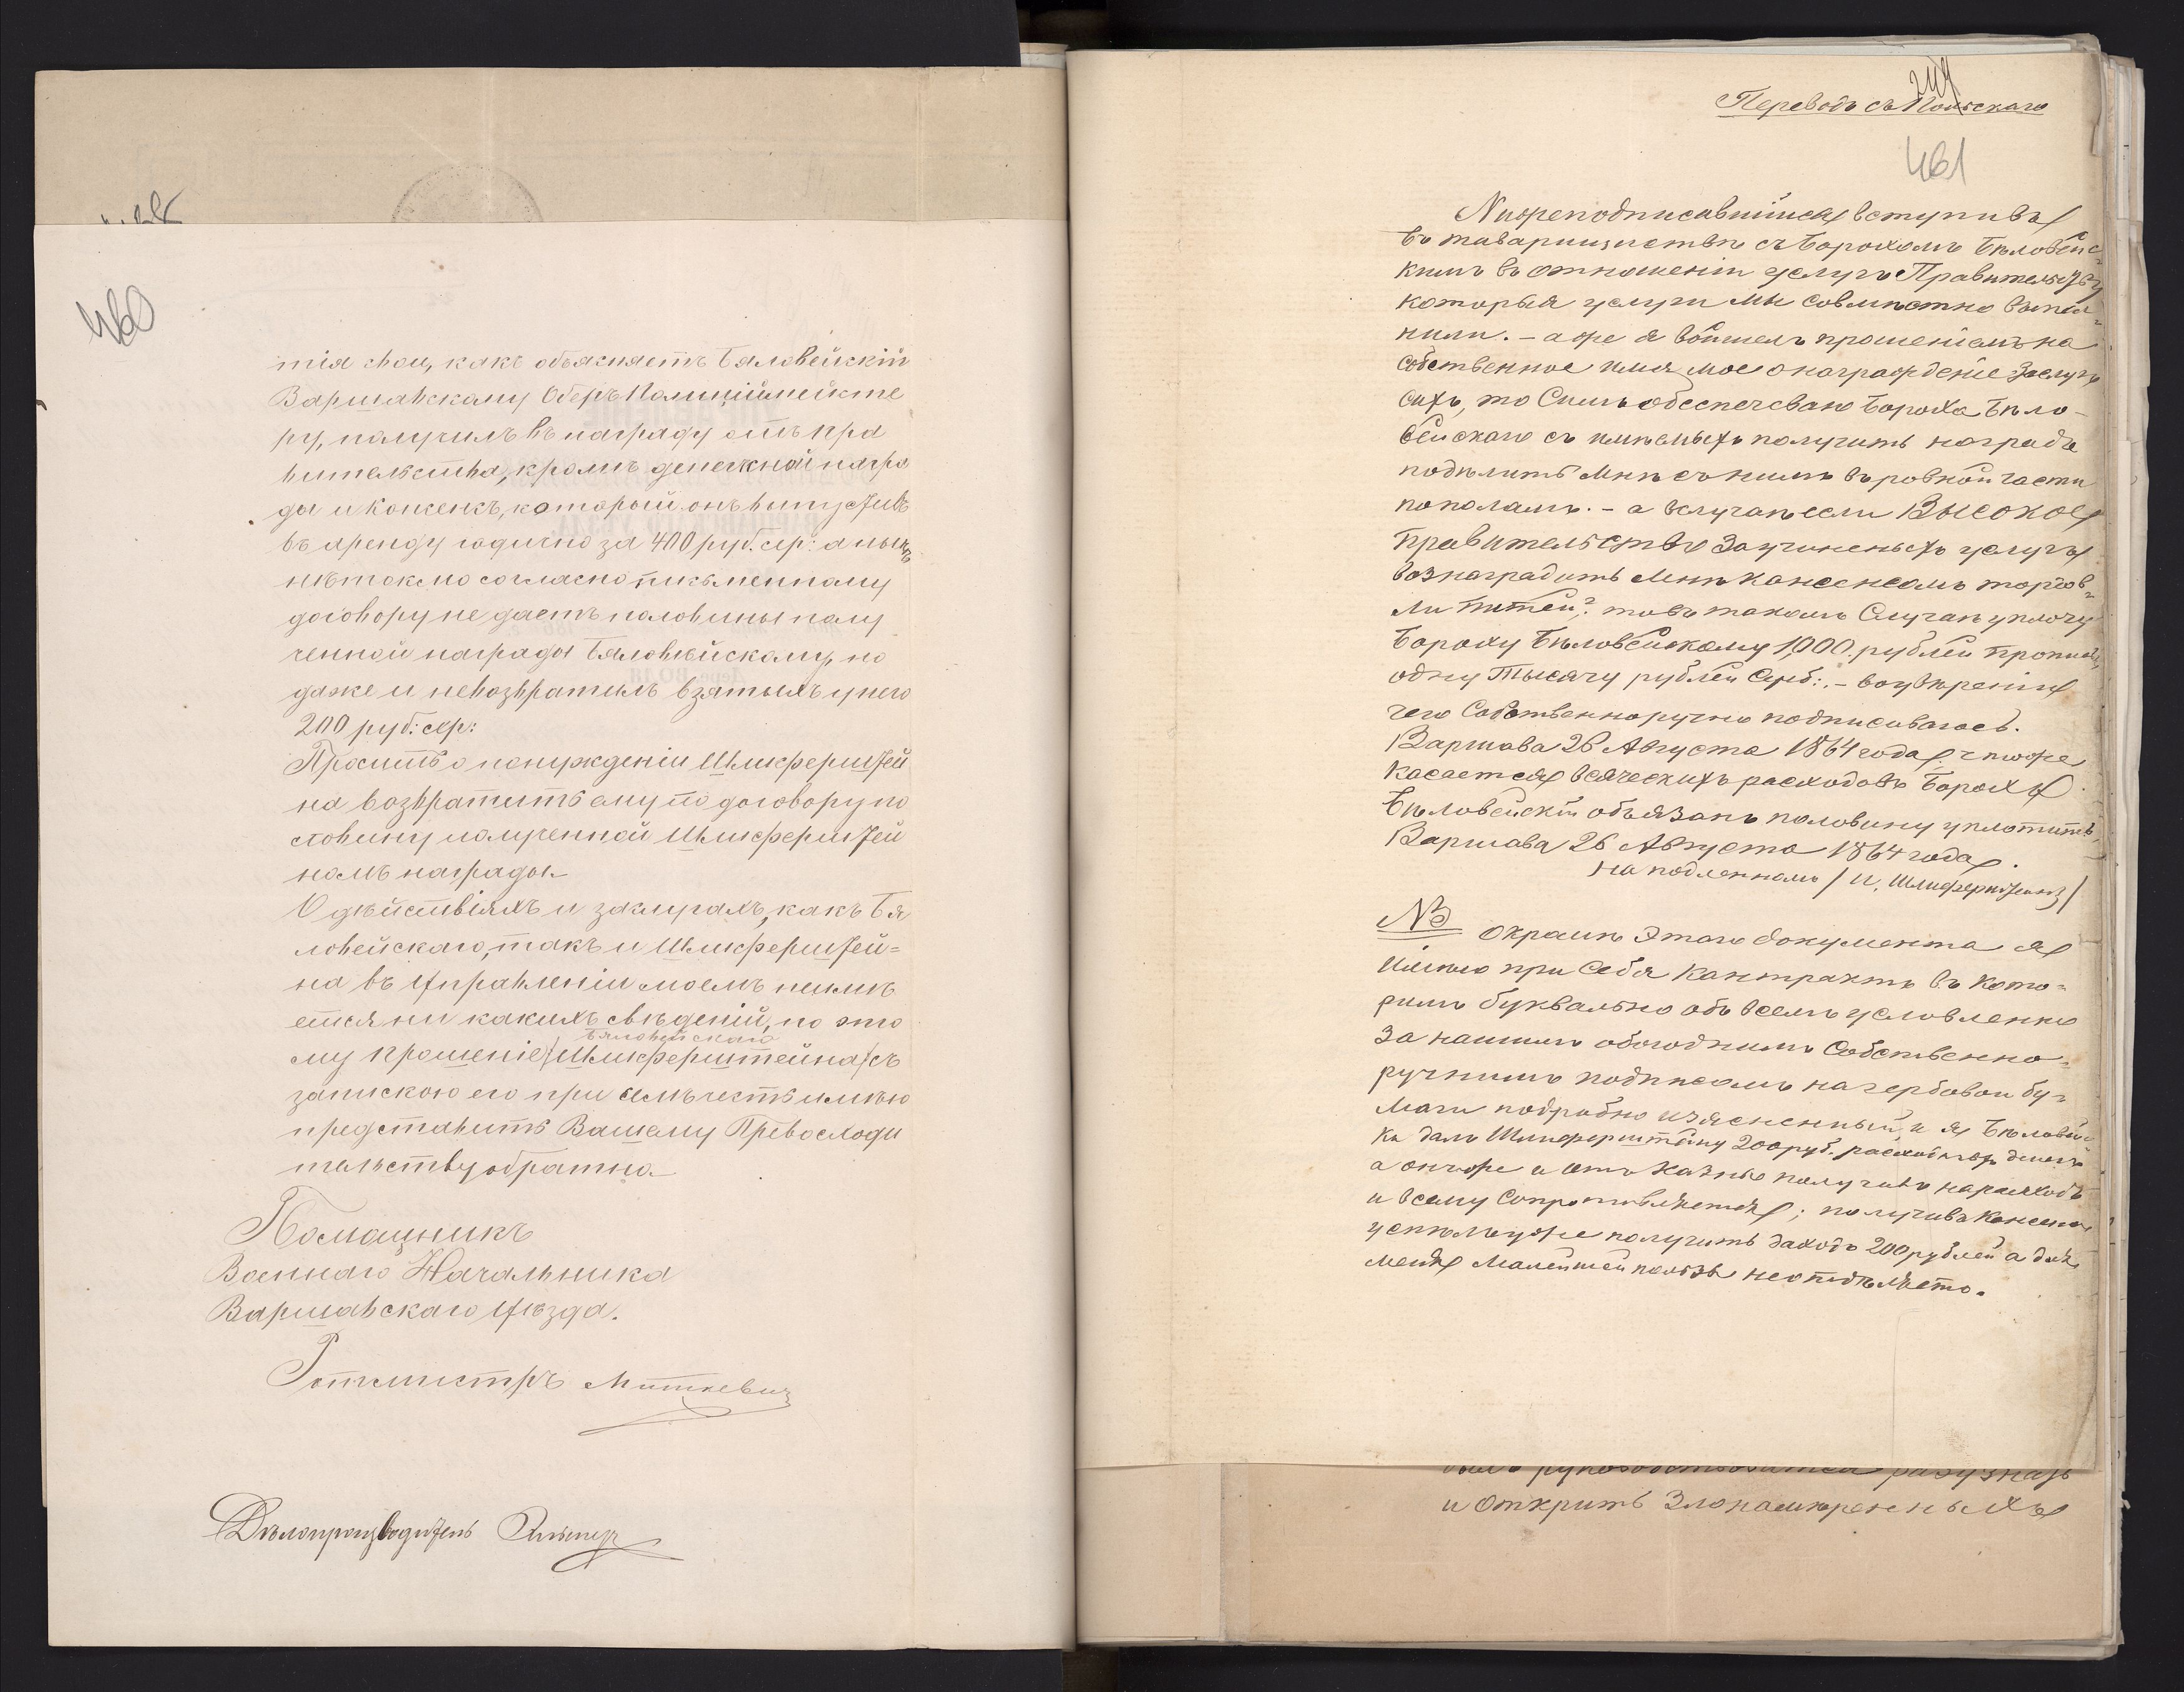 460
тія свои, какъ объясняетъ Бяловейскій
Варшавскому Оберъ Полиціймейсте
ру, получилъ въ награду отъ пра
вительства, кромѣ денежной награ
ды и Консенсъ, который онъ выпустивъ
въ аренду годично за 400 руб. сер: а нынѣ
нетокмо согласно письменному
договору не даетъ половины полу
ченной награды Бяловейскому, но
даже и невозвратилъ взятыхъ у него
200 руб: сер:
Проситъ о понужденіи Шлиферштей
на возвратить ему по договору по
ловину полученной Шлиферштей
номъ награды.
О дѣйствіяхъ и заслугахъ, какъ Бя
ловейскаго, такъ и Шлиферштей=
на въ Управленіи моемъ неимѣ
ется ни какихъ свѣденій, по это
Бяловейскаго
му прошеніе (Шлиферштейна) съ
запискою его при семъ честь имѣю
представить Вашему Превосходи
тельству обратно.
Помощникъ
Военнаго Начальника
Варшавскаго Уѣзда.
Ротмистръ Миткевич
Дѣлопроизводитель
Переводъ съ Польскаго
461
Нижеподписавшійся вступивъ
въ товариществѣ съ Борохомъ Бѣловейс=
кимъ въ отношеніи услугъ Правительству
которыя услуги мы совмѣстно выпол=
нили. – а же я вошелъ прошеніемъ на
собственное имя мое о награжденіе заслугъ
сихъ, то Симъ обеспечеваю Бороха Бѣло-
вейскаго съ имѣемыхъ получить наградъ
подѣлить мнѣ съ нимъ въ ровной части
пополамъ. – а вслучаѣ если Высокое
Правительство за учиненыхъ услугъ
вознаградитъ мнѣ консенсомъ торгов=
ли питей, то въ такомъ Случаѣ уплочу
Бороху Бѣловейскому 1,000 рублей прописью,
одну Тысячу рублей Сереб:. – воувѣреніи
чего Собственноручно подписоваюсь.
Варшава 26 Августа 1864 года. чтоже
касается всяческихъ расходовъ Борохъ
Бѣловейскій объязанъ половину уплотить,
Варшава 26 Августа 1864 года.
на подленномъ / И. Шлиферштейнъ /
NB окрамѣ этаго документа я
Имѣю при Себя Контрактъ въ кото=
римъ буквально объ всемъ условленно
за нашимъ обогоднимъ Собственно=
ручнимъ подписомъ на гербовой бу=
маги подрабно изясненный, и я, Бѣловей
ки далъ Шлиферштейну 200 руб. расходовъ денегъ
а онъже и отъ казны получивъ нарасходъ
и всему Сопротивляется; получивъ консенсъ
успѣлъуже получить даходъ 200 рублей а для
меня малейшей пользы неотдѣляетъ.
и Открить Злонамѣренныхъ